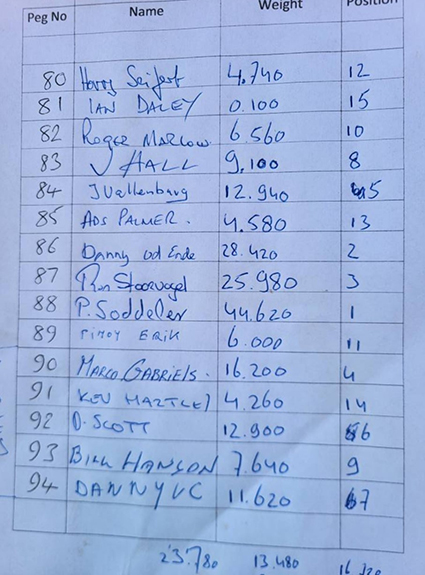 Peg No Name Weight Position
80 Harry Seifert 4.740 12
81 IAN DALEY 0.100 15
82 ROGER MARLOW 6.560 10
83 J HALL 9.100 8
84 J Vallenbarg 12.940 5
85 ADS PALMER. 4.580 13
86 Danny vd Ende 28.420 2
87 Ron Stoorvogel 25.980 3
88 P. Soddeler 44.620 1
89 ERIK 6.000 11
90 MARCO GABRIELS. 16.200 4
91 KEV 4.260 14
92 D. SCOTT 12.900 6
93 BILL HANSON 7.640 9
94 DANNY VC 11.620 7
23.780 13.480